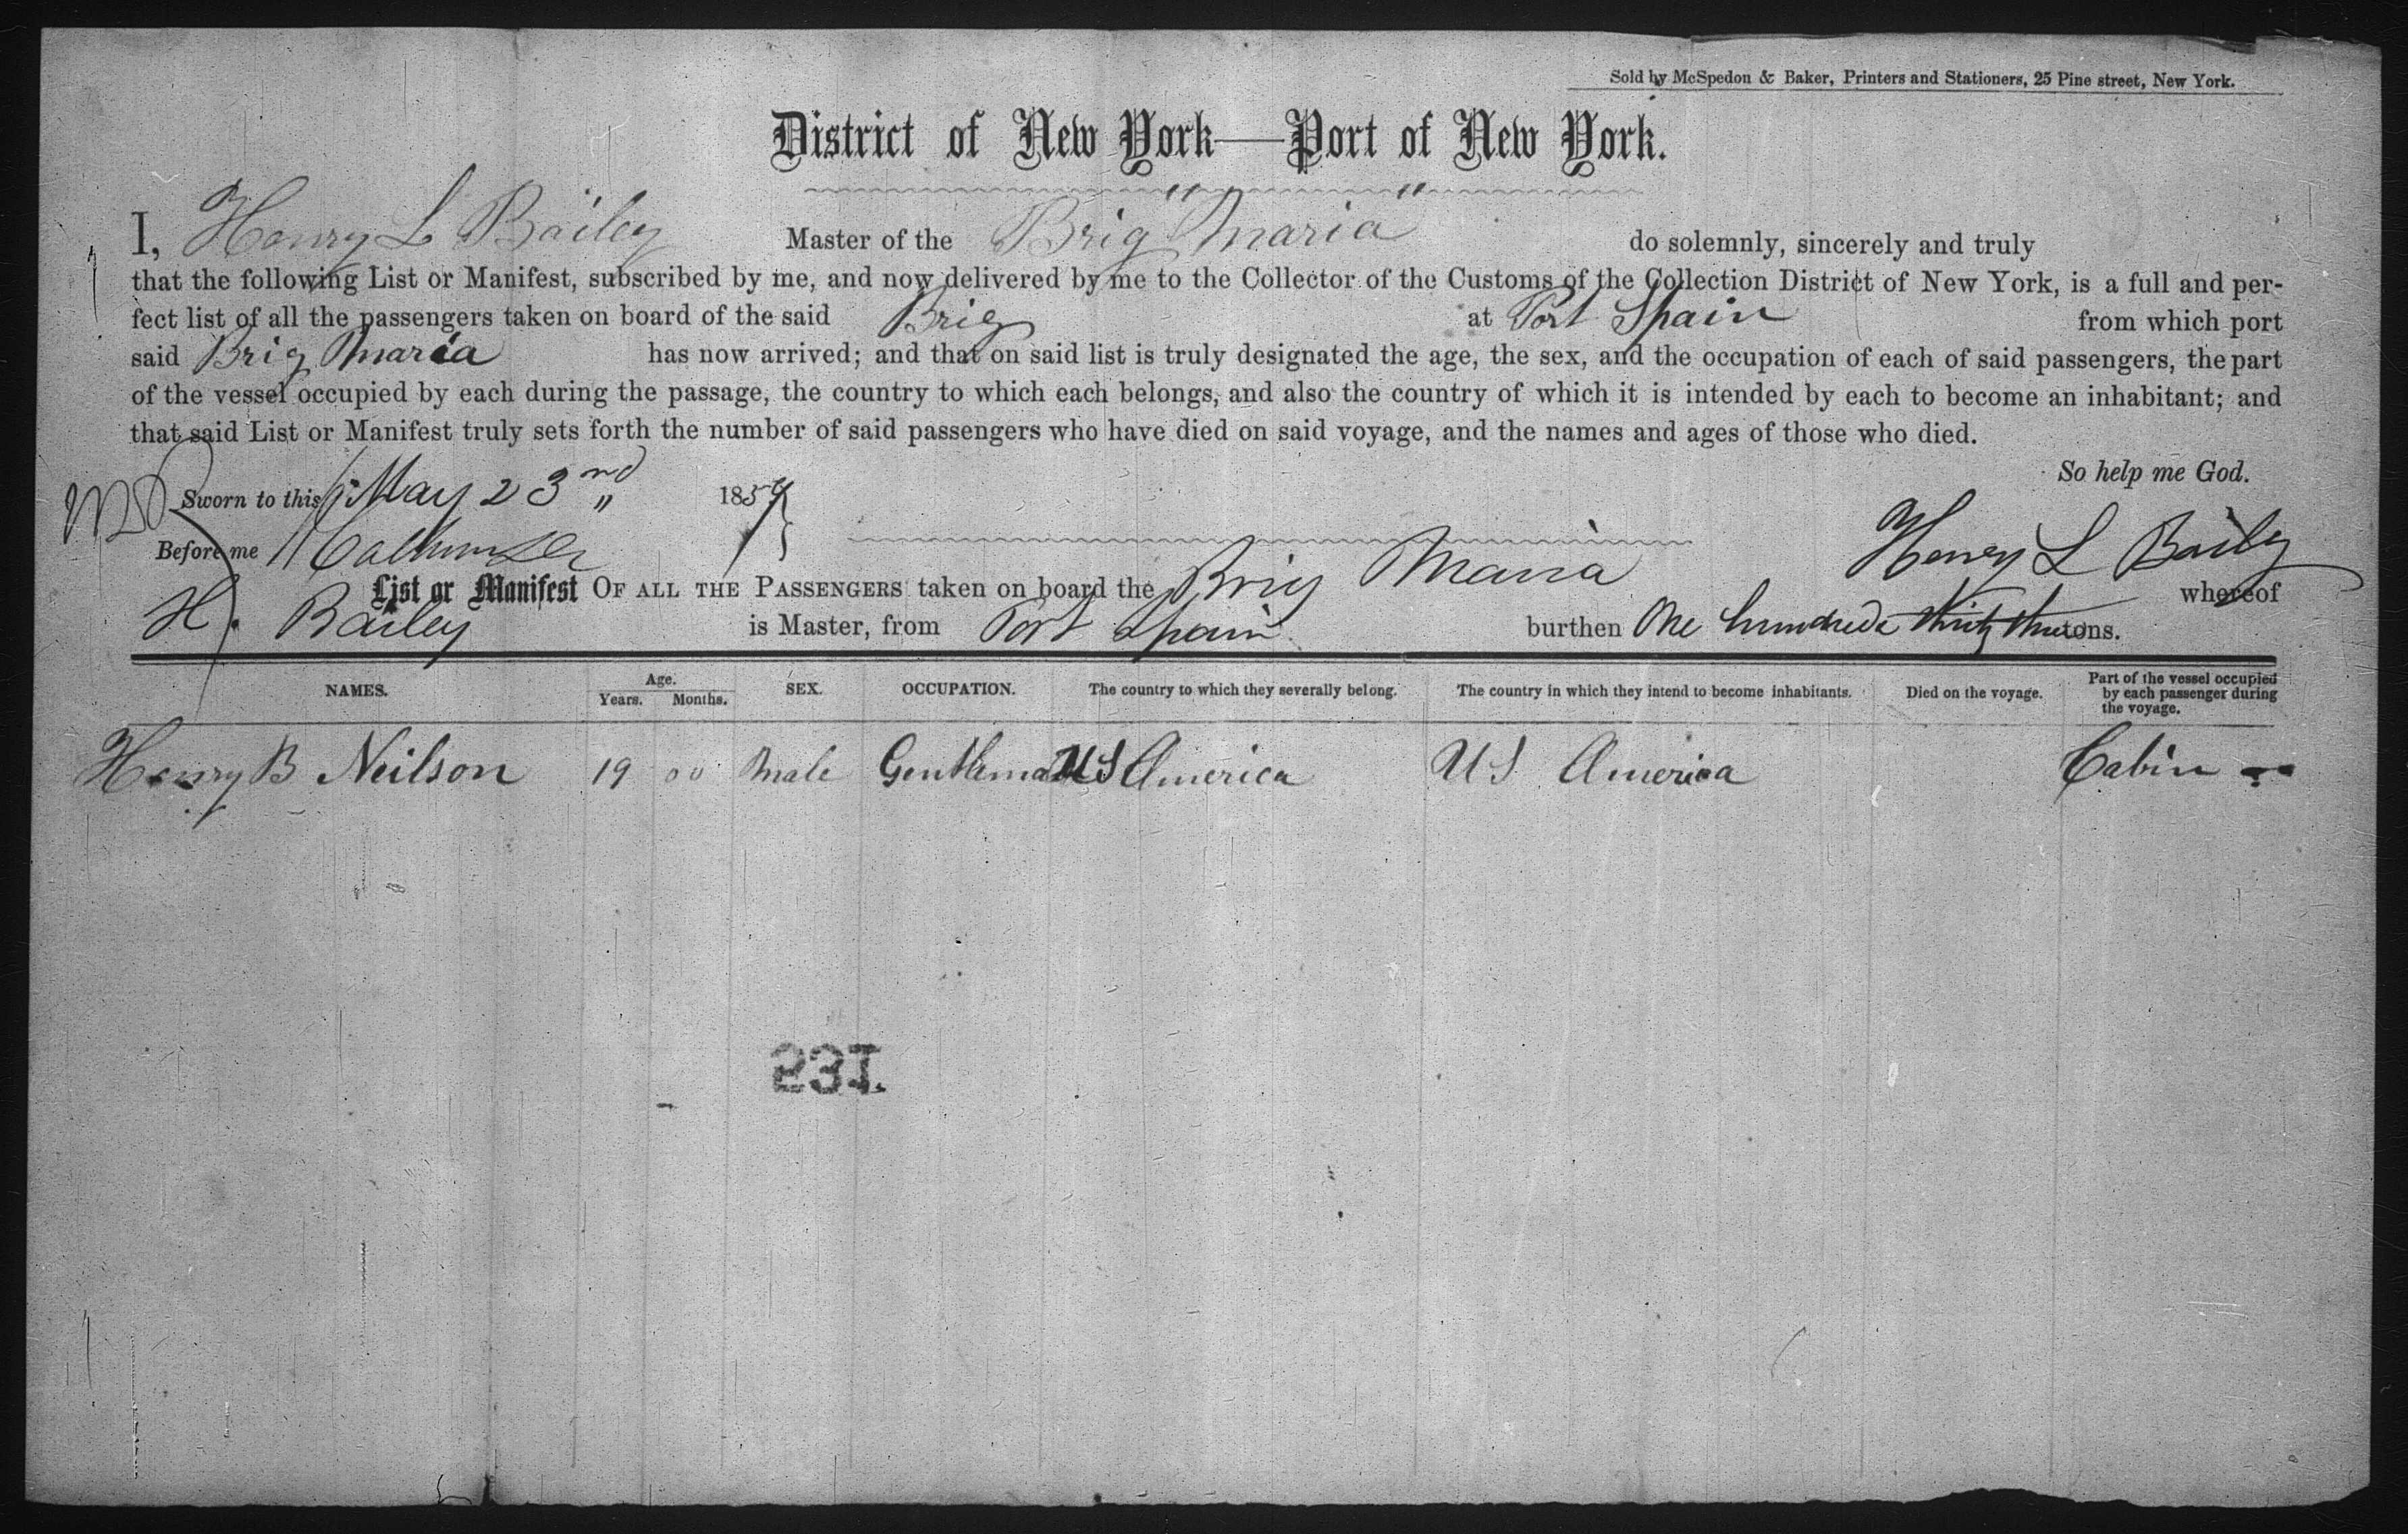 Sold by McSpedon & Baker, Printers and Stationers, 25 Pine street, New York.
District of New York—Port of New York.
I, Henry L Bailey Master of the Brig "Maria" do solemnly, sincerely and truly
that the following List or Manifest, subscribed by me, and now delivered by me to the Collector of the Customs of the Collection District of New York, is a full and per-
fect list of all the passengers taken on board of the said Brig at Port Spain from which port
said Brig Maria has now arrived; and that on said list is truly designated the age, the sex, and the occupation of each of said passengers, the part
of the vessel occupied by each during the passage, the country to which each belongs, and also the country of which it is intended by each to become an inhabitant; and
that said List or Manifest truly sets forth the number of said passengers who have died on said voyage, and the names and ages of those who died.
So help me God.
Sworn to this May 23nd 1859
Before me
Henry L Baily
List or Manifest OF ALL THE PASSENGERS taken on board the Brig Maria whereof
H. Bailey is Master, from Port Spain burthen One hundred thirty three tons.
NAMES. Age. Years. Months. SEX. OCCUPATION. The country to which they severally belong. The country in which they intend to become inhabitants. Died on the voyage. Part of the vessel occupied by each passenger during the voyage.
Henry B Neilson 19 00 Male Gentleman US America US America Cabin